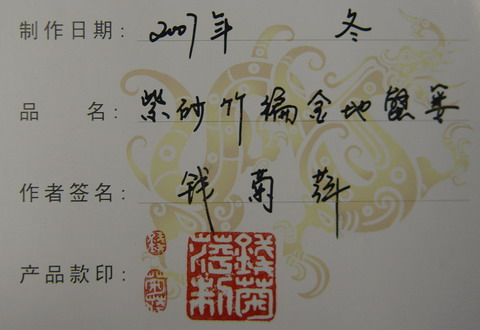 制作日期: 2007年 冬
品 名: 紫砂竹编金地蟹篓
作者签名: 钱菊萍
产品款印: 錢菊萍制